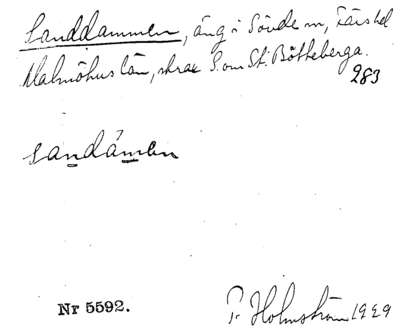 Sanddammen, äng i Sövde sn, Färs hd
Malmöhus län, strax S. om St. Bötteberga.
283
sandámen
Nr 5592.
P. Holmström 1929